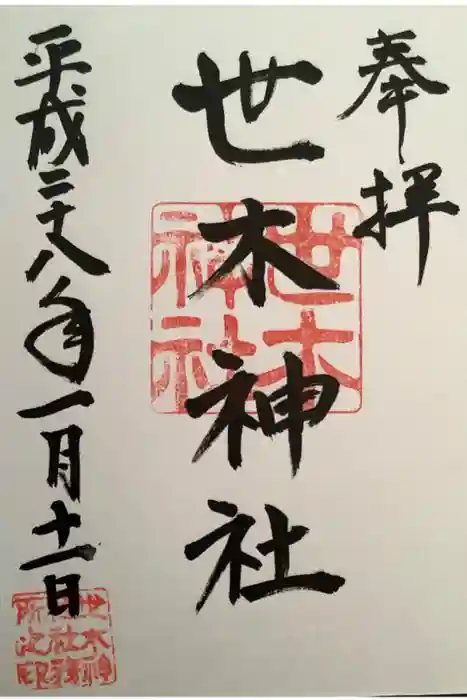 奉拝
世木神社
世木神社
平成二十八年一月十一日
世木神社務所之印